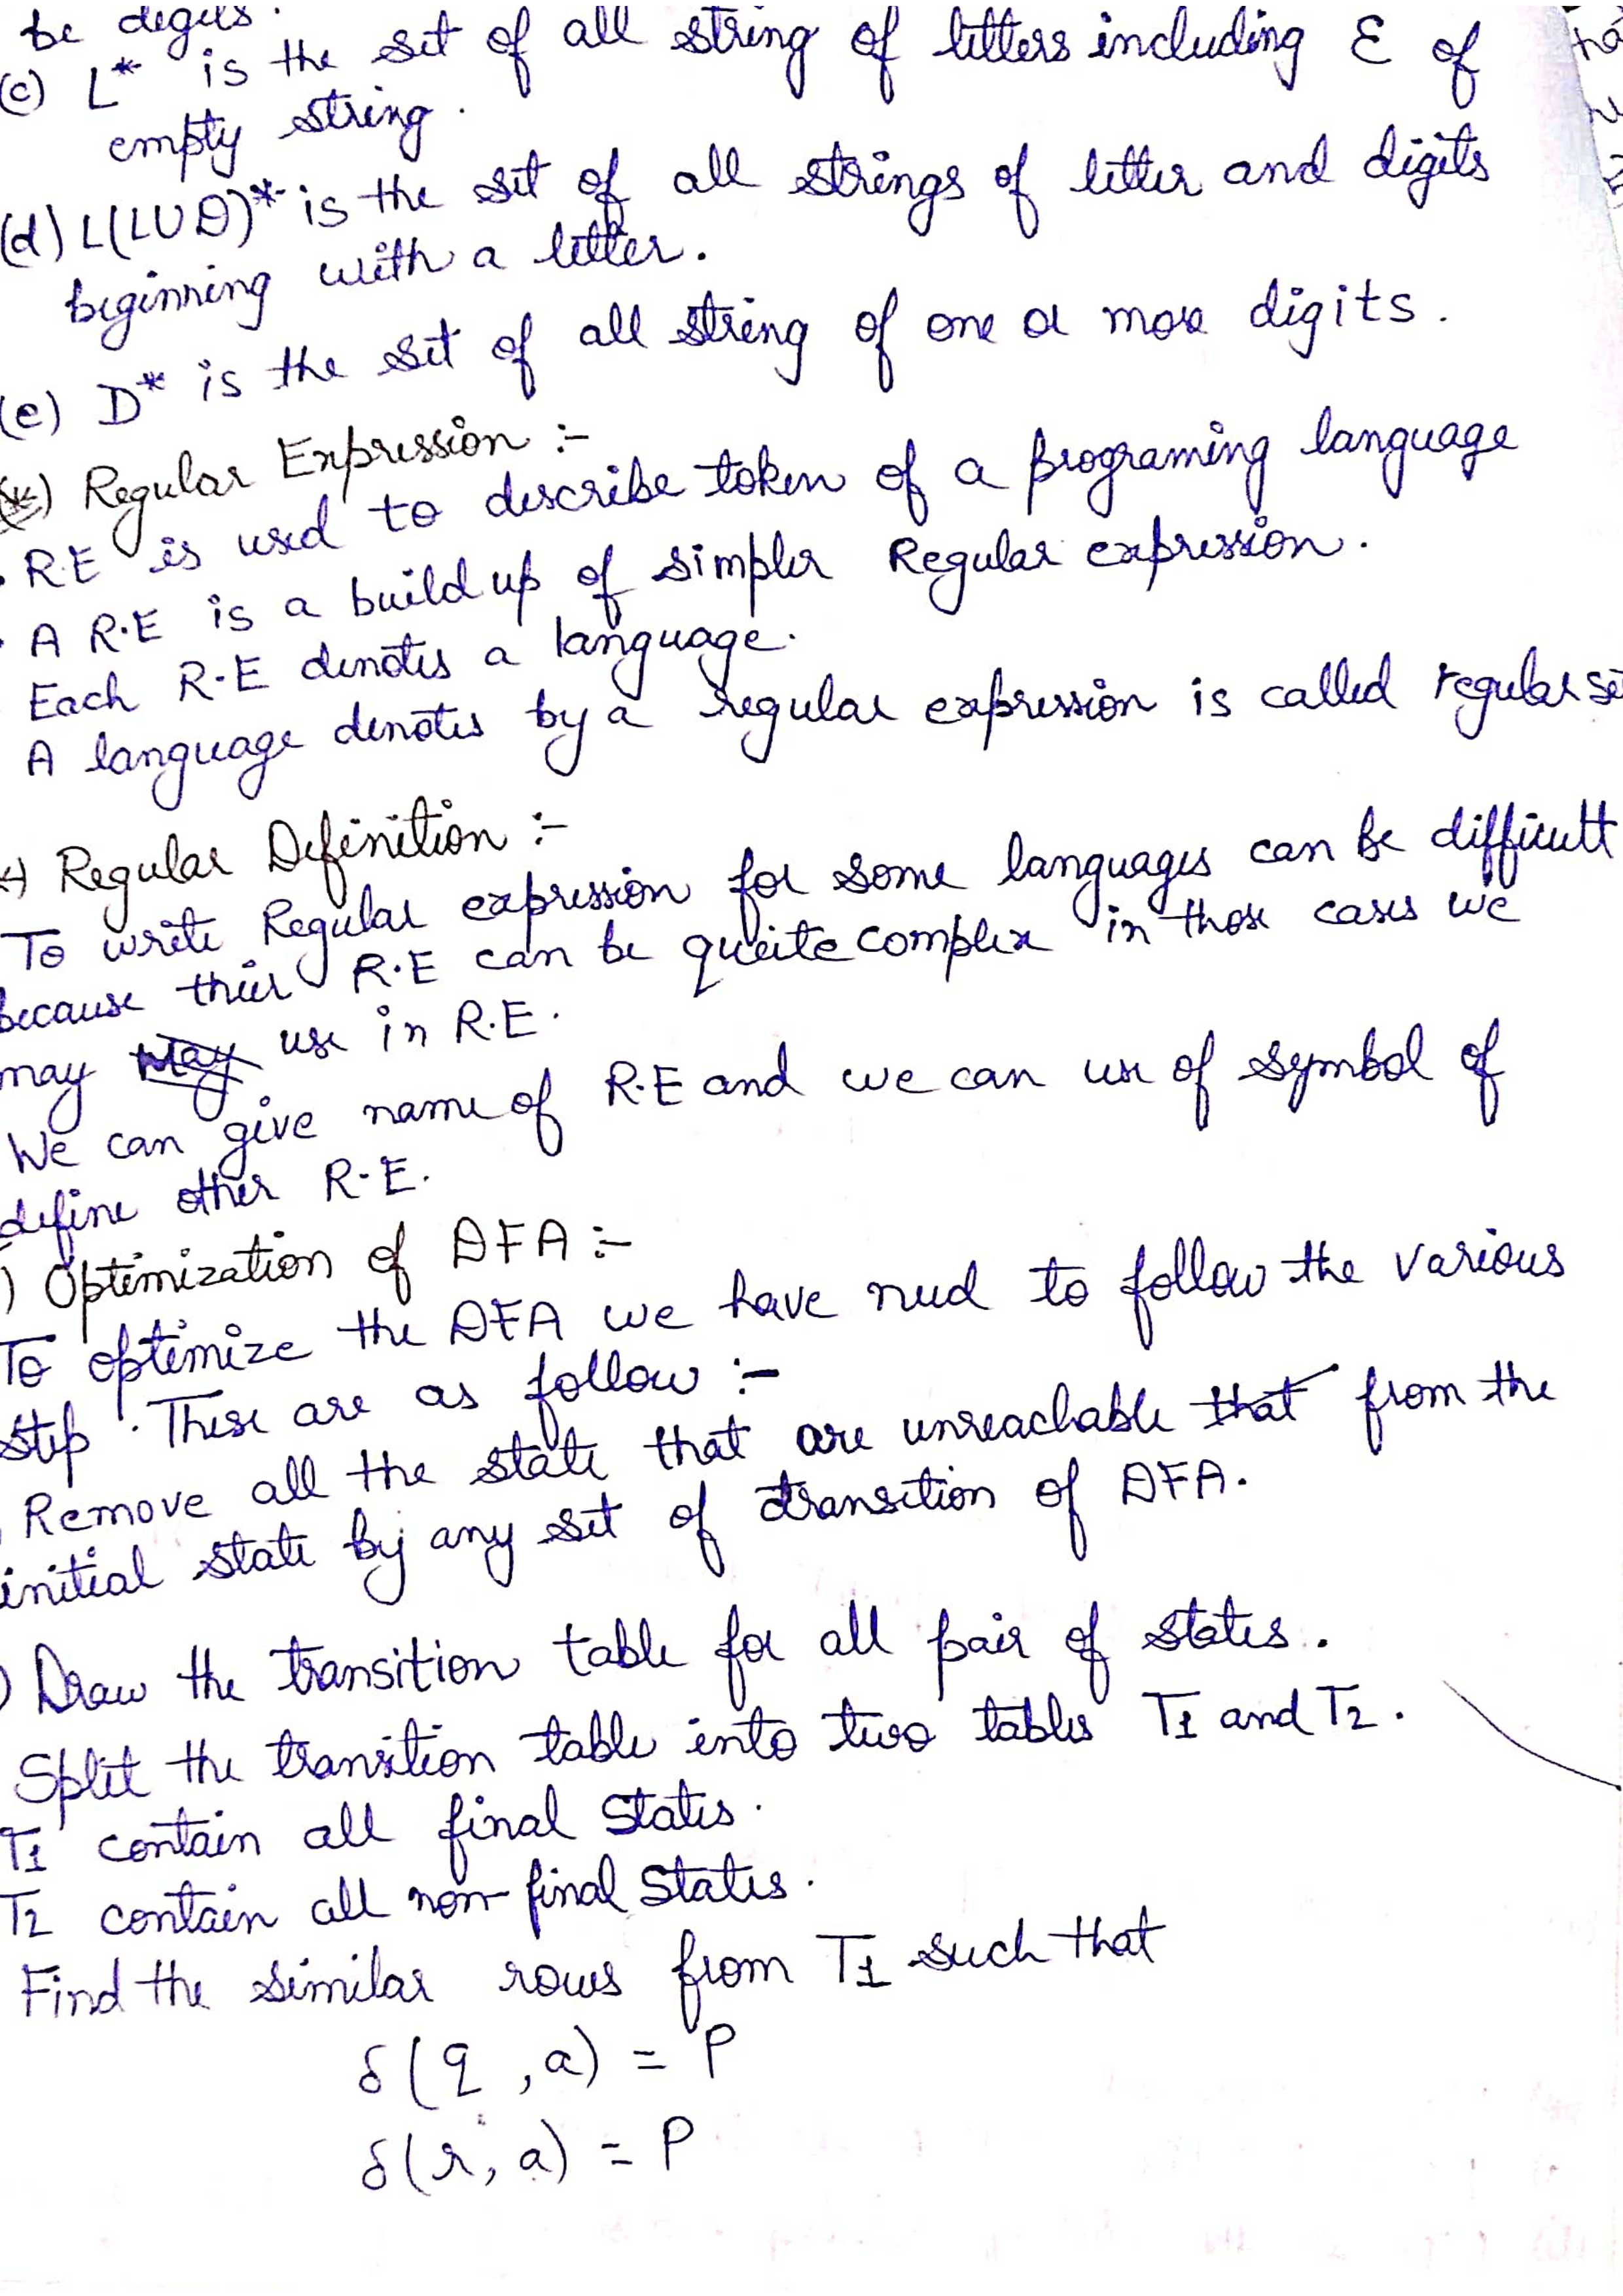 be digits.
(c) L* is the set of all string of letters including ε of
empty string.
(d) L(LUD)* is the set of all strings of letter and digits
beginning with a letter.
(e) D* is the set of all string of one or more digits.
(*) Regular Expression :-
. R.E is used to describe token of a programing language
. A R.E is a build up of simpler Regular expression.
Each R.E denotes a language.
A language denotes by a regular expression is called regular se
Regular Definition :-
To write Regular expression for some languages can be difficult
because thier R.E can be queite complex in those cases we
may may use in R.E.
We can give name of R.E and we can use of symbol of
define other R.E.
) Optimization of DFA :-
To optimize the DFA we have need to follow the various
step. These are as follow :-
Remove all the state that are unreachable that from the
initial state by any set of transition of DFA.
) Draw the transition table for all pair of states.
Split the transition table into two tables T1 and T2.
T1 contain all final states.
T2 contain all non-final states.
Find the similar rows from T1 such that
δ(q, a) = P
δ(r, a) = P